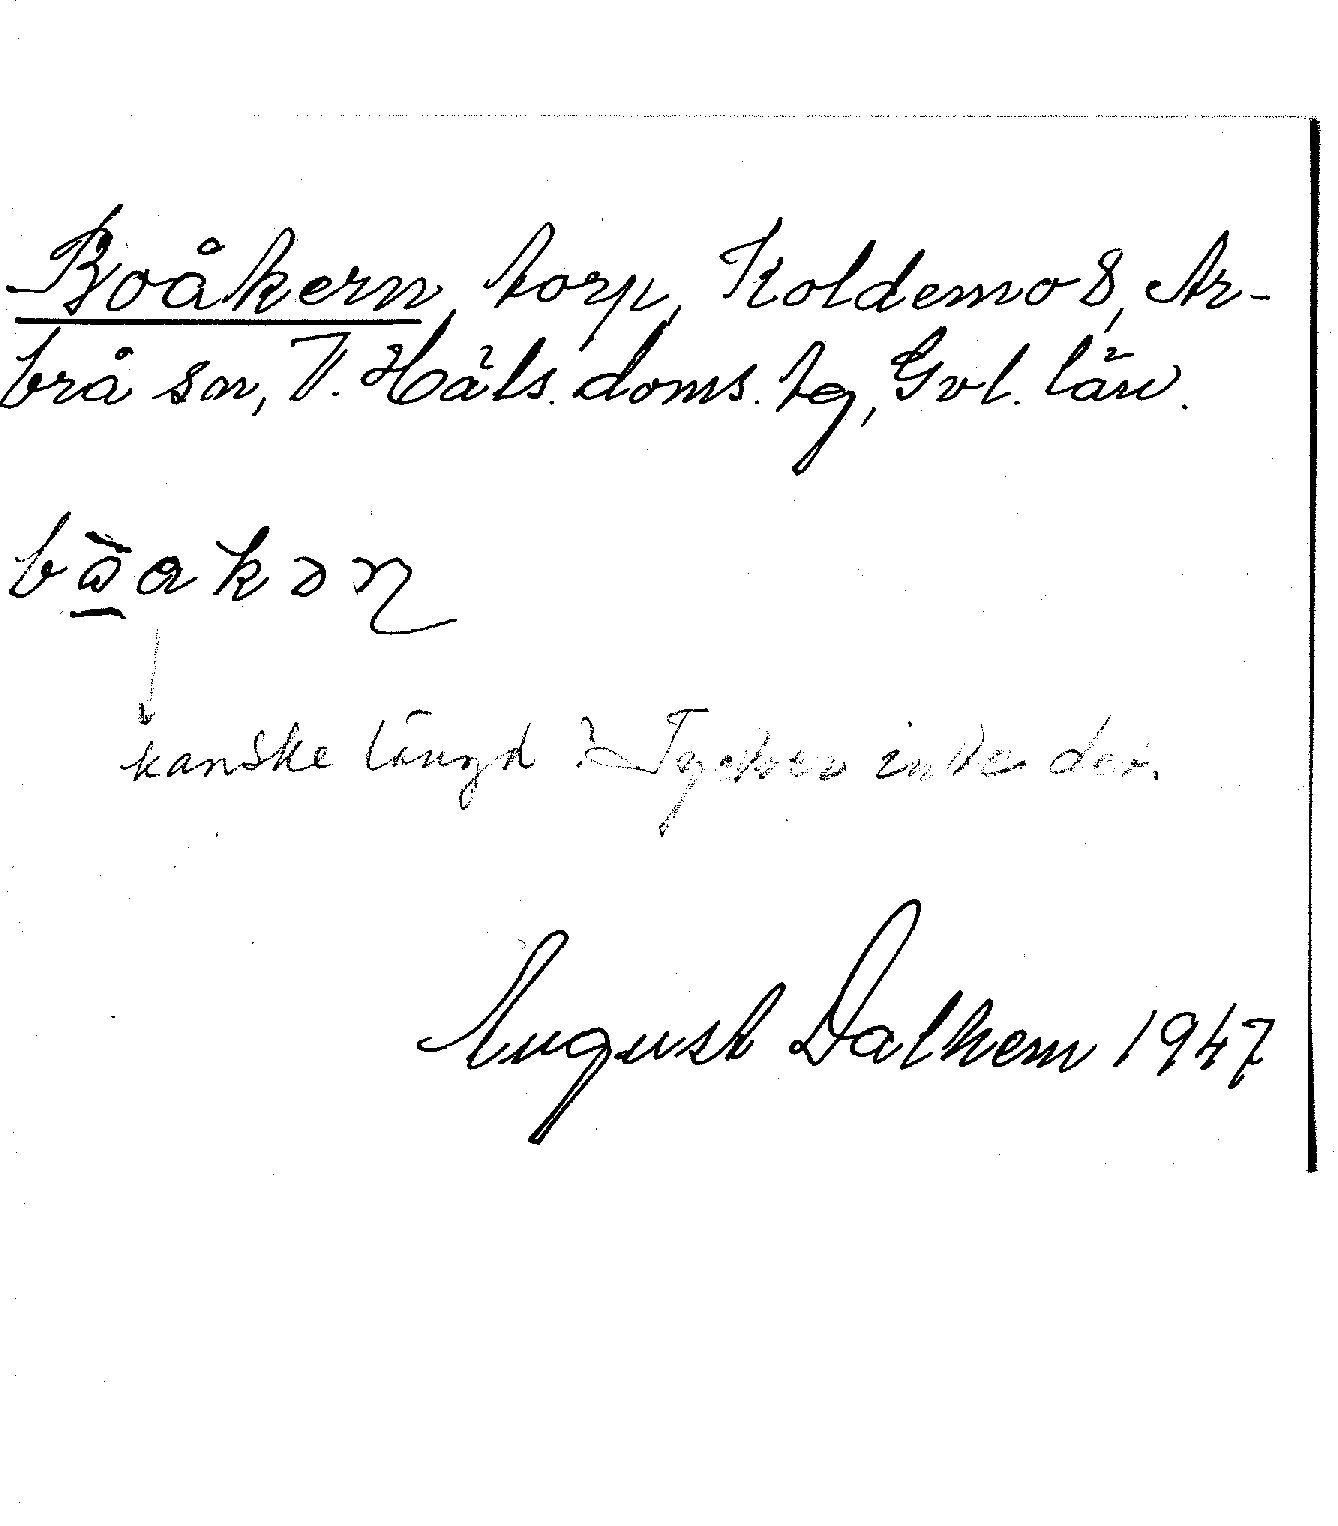 Boåkern, torp, Koldemo 8, Ar-
brå sn, V. Häls. doms. tg, Gvl. län.
bɷ̀akəɳ
kanske längd? Tycker inte det.
August Dalhem 1947